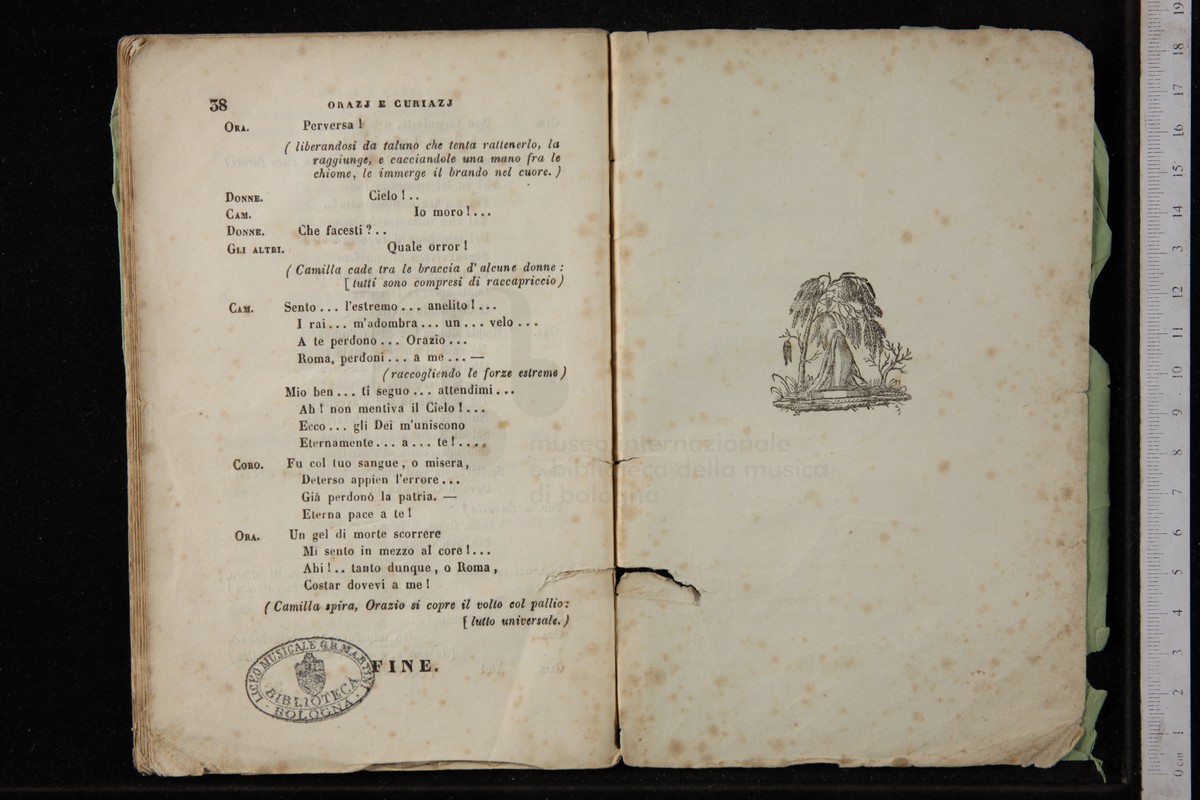 38 ORAZJ E CURIAZJ
ORA. Perversa !
( liberandosi da taluno che tenta rattenerlo, la
raggiunge, e cacciandole una mano fra le
chiome, le immerge il brando nel cuore. )
DONNE. Cielo ! . .
CAM. Io moro ! . . .
DONNE. Che facesti ? . .
GLI ALTRI. Quale orror !
( Camilla cade tra le braccia d' alcune donne :
[ tutti sono compresi di raccapriccio )
CAM. Sento . . . l'estremo . . . anelito ! . . .
I rai . . . m'adombra . . . un . . . velo . . .
A te perdono . . . Orazio . . .
Roma, perdoni . . . a me . . . —
( raccogliendo le forze estreme )
Mio ben . . . ti seguo . . . attendimi . . .
Ah ! non mentiva il Cielo ! . . .
Ecco . . . gli Dei m'uniscono
Eternamente . . . a . . . te ! . . . .
CORO. Fu col tuo sangue, o misera,
Deterso appien l'errore . . .
Già perdonò la patria. —
Eterna pace a te !
ORA. Un gel di morte scorrere
Mi sento in mezzo al core ! . . .
Ahi ! . . tanto dunque, o Roma,
Costar dovevi a me !
( Camilla spira, Orazio si copre il volto col pallio :
[ lutto universale. )
FINE.
LICEO MUSICALE G.B. MARTINI
BIBLIOTECA
BOLOGNA
museo internazionale
e biblioteca della musica
di bologna
0 cm 1 2 3 4 5 6 7 8 9 10 11 12 13 14 15 16 17 18 19